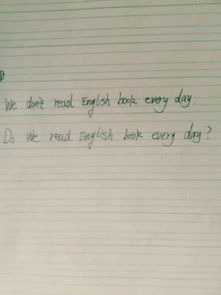 We don't read English book every day.
Do we read English book every day?